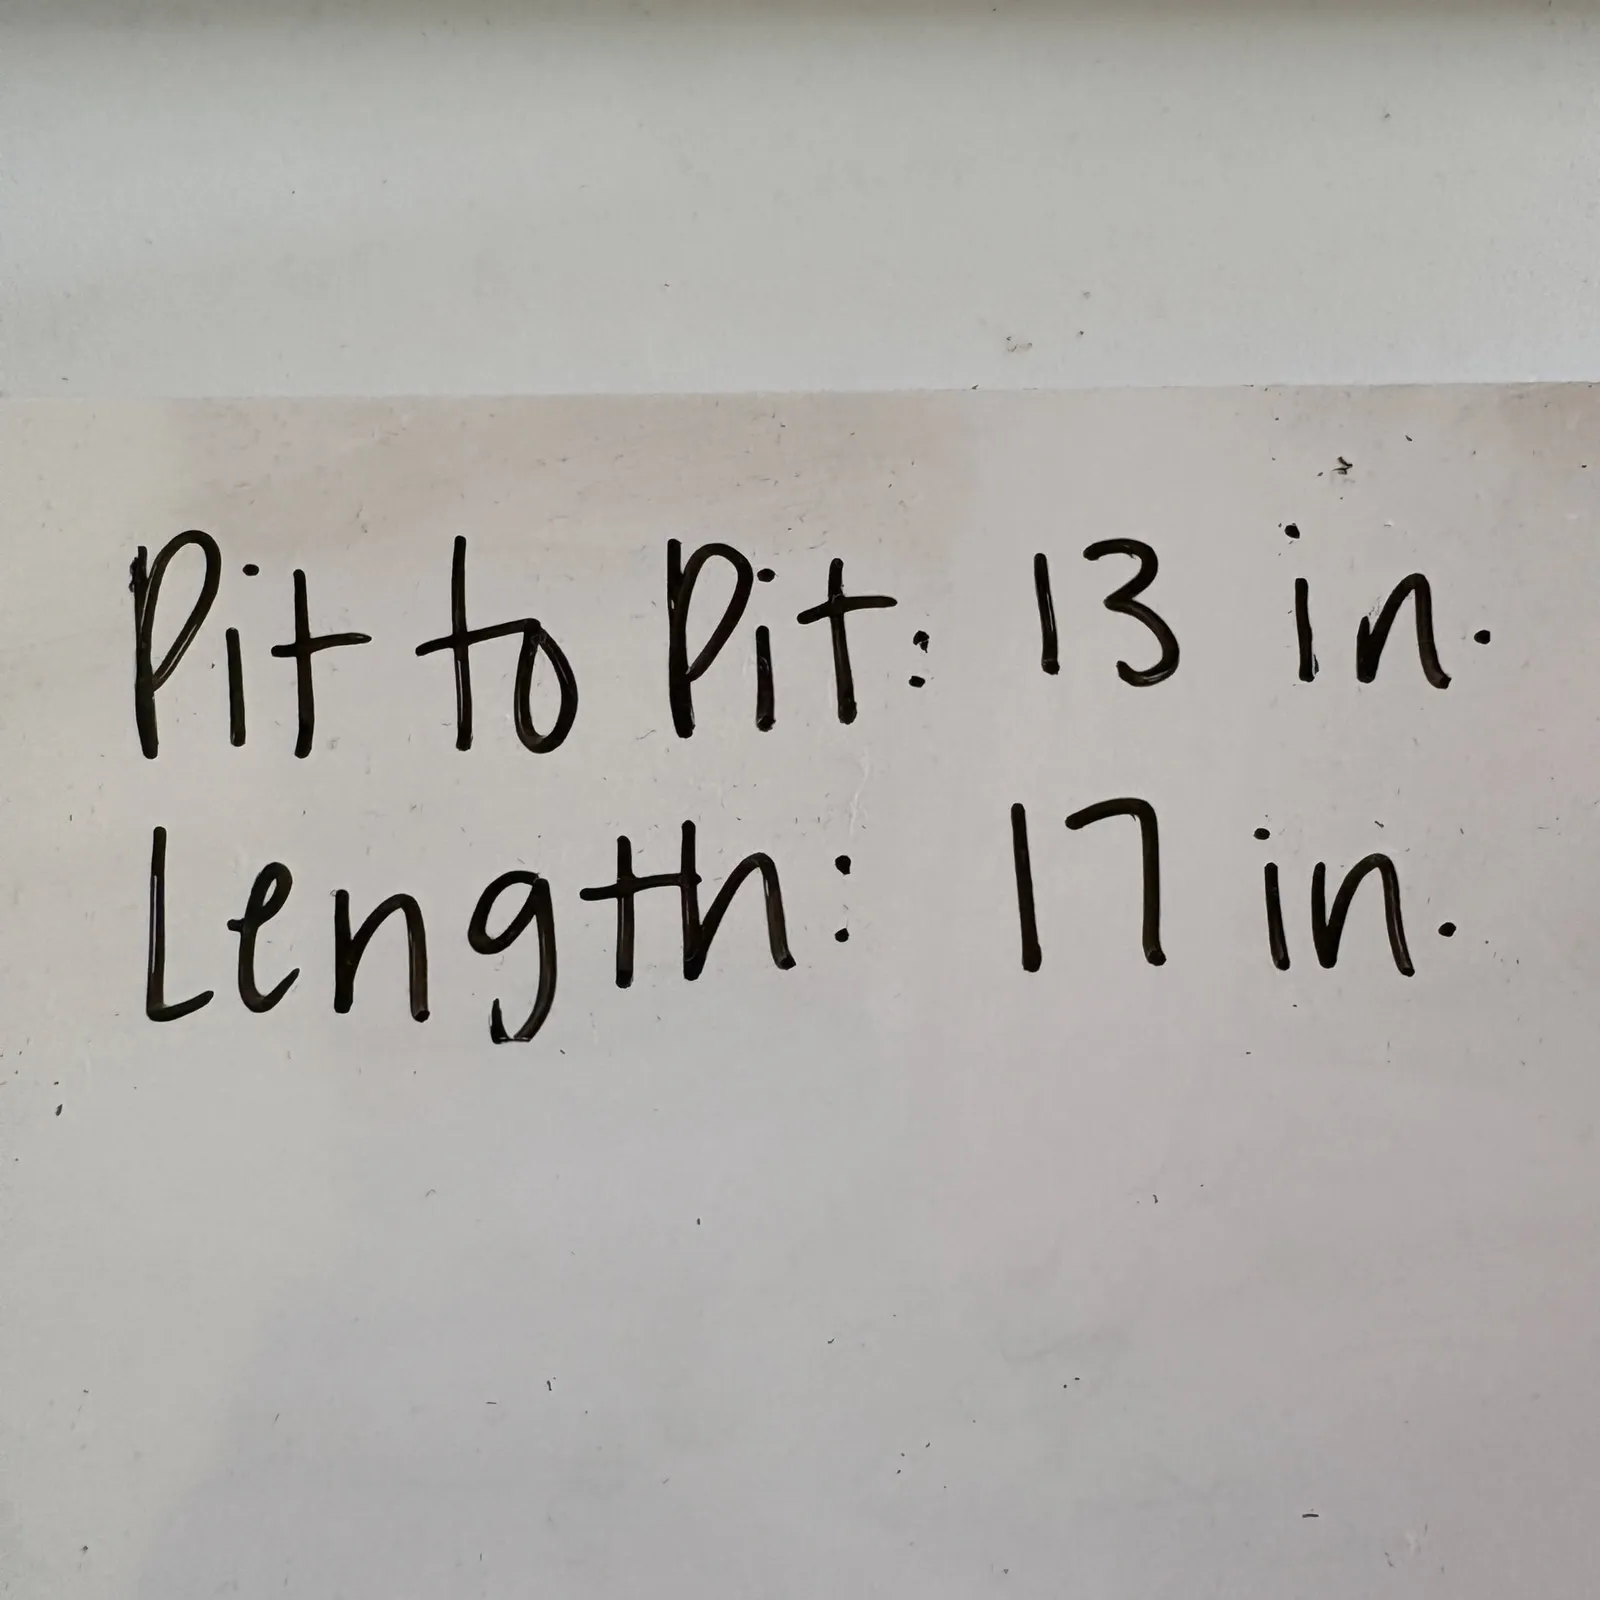 Pit to Pit: 13 in.
Length: 17 in.